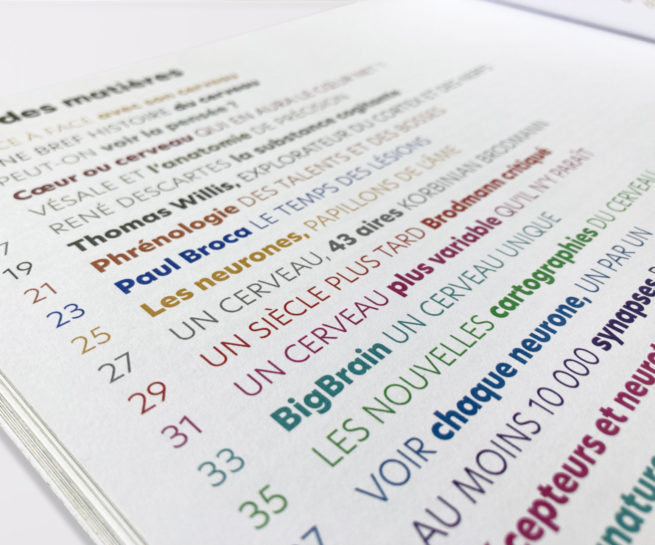 des matières
CE À FACE avec son cerveau
NE BREF HISTOIRE du cerveau
PEUT-ON voir la pensée ?
Cœur ou cerveau QUI EN AURA LE CŒUR NET ?
VÉSALE ET l'anatomie DE PRÉCISION
RENÉ DESCARTES la substance cogitante
7 Thomas Willis, EXPLORATEUR DU CORTEX ET DES NERFS
19 Phrénologie DES TALENTS ET DES BOSSES
21 Paul Broca LE TEMPS DES LÉSIONS
23 Les neurones, PAPILLONS DE L'ÂME
25 UN CERVEAU, 43 aires KORBINIAN BRODMANN
27 UN SIÈCLE PLUS TARD Brodmann critiqué
29 UN CERVEAU plus variable QU'IL N'Y PARAÎT
31 BigBrain UN CERVEAU UNIQUE
33 LES NOUVELLES cartographies DU CERVEAU
35 VOIR chaque neurone, UN PAR UN
37 AU MOINS 10 000 synapses
cepteurs et neurot
nature